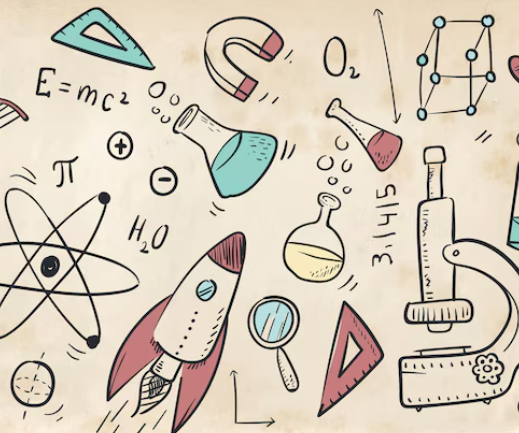 E=mc²
O₂
+
π
-
H₂O
3.1415